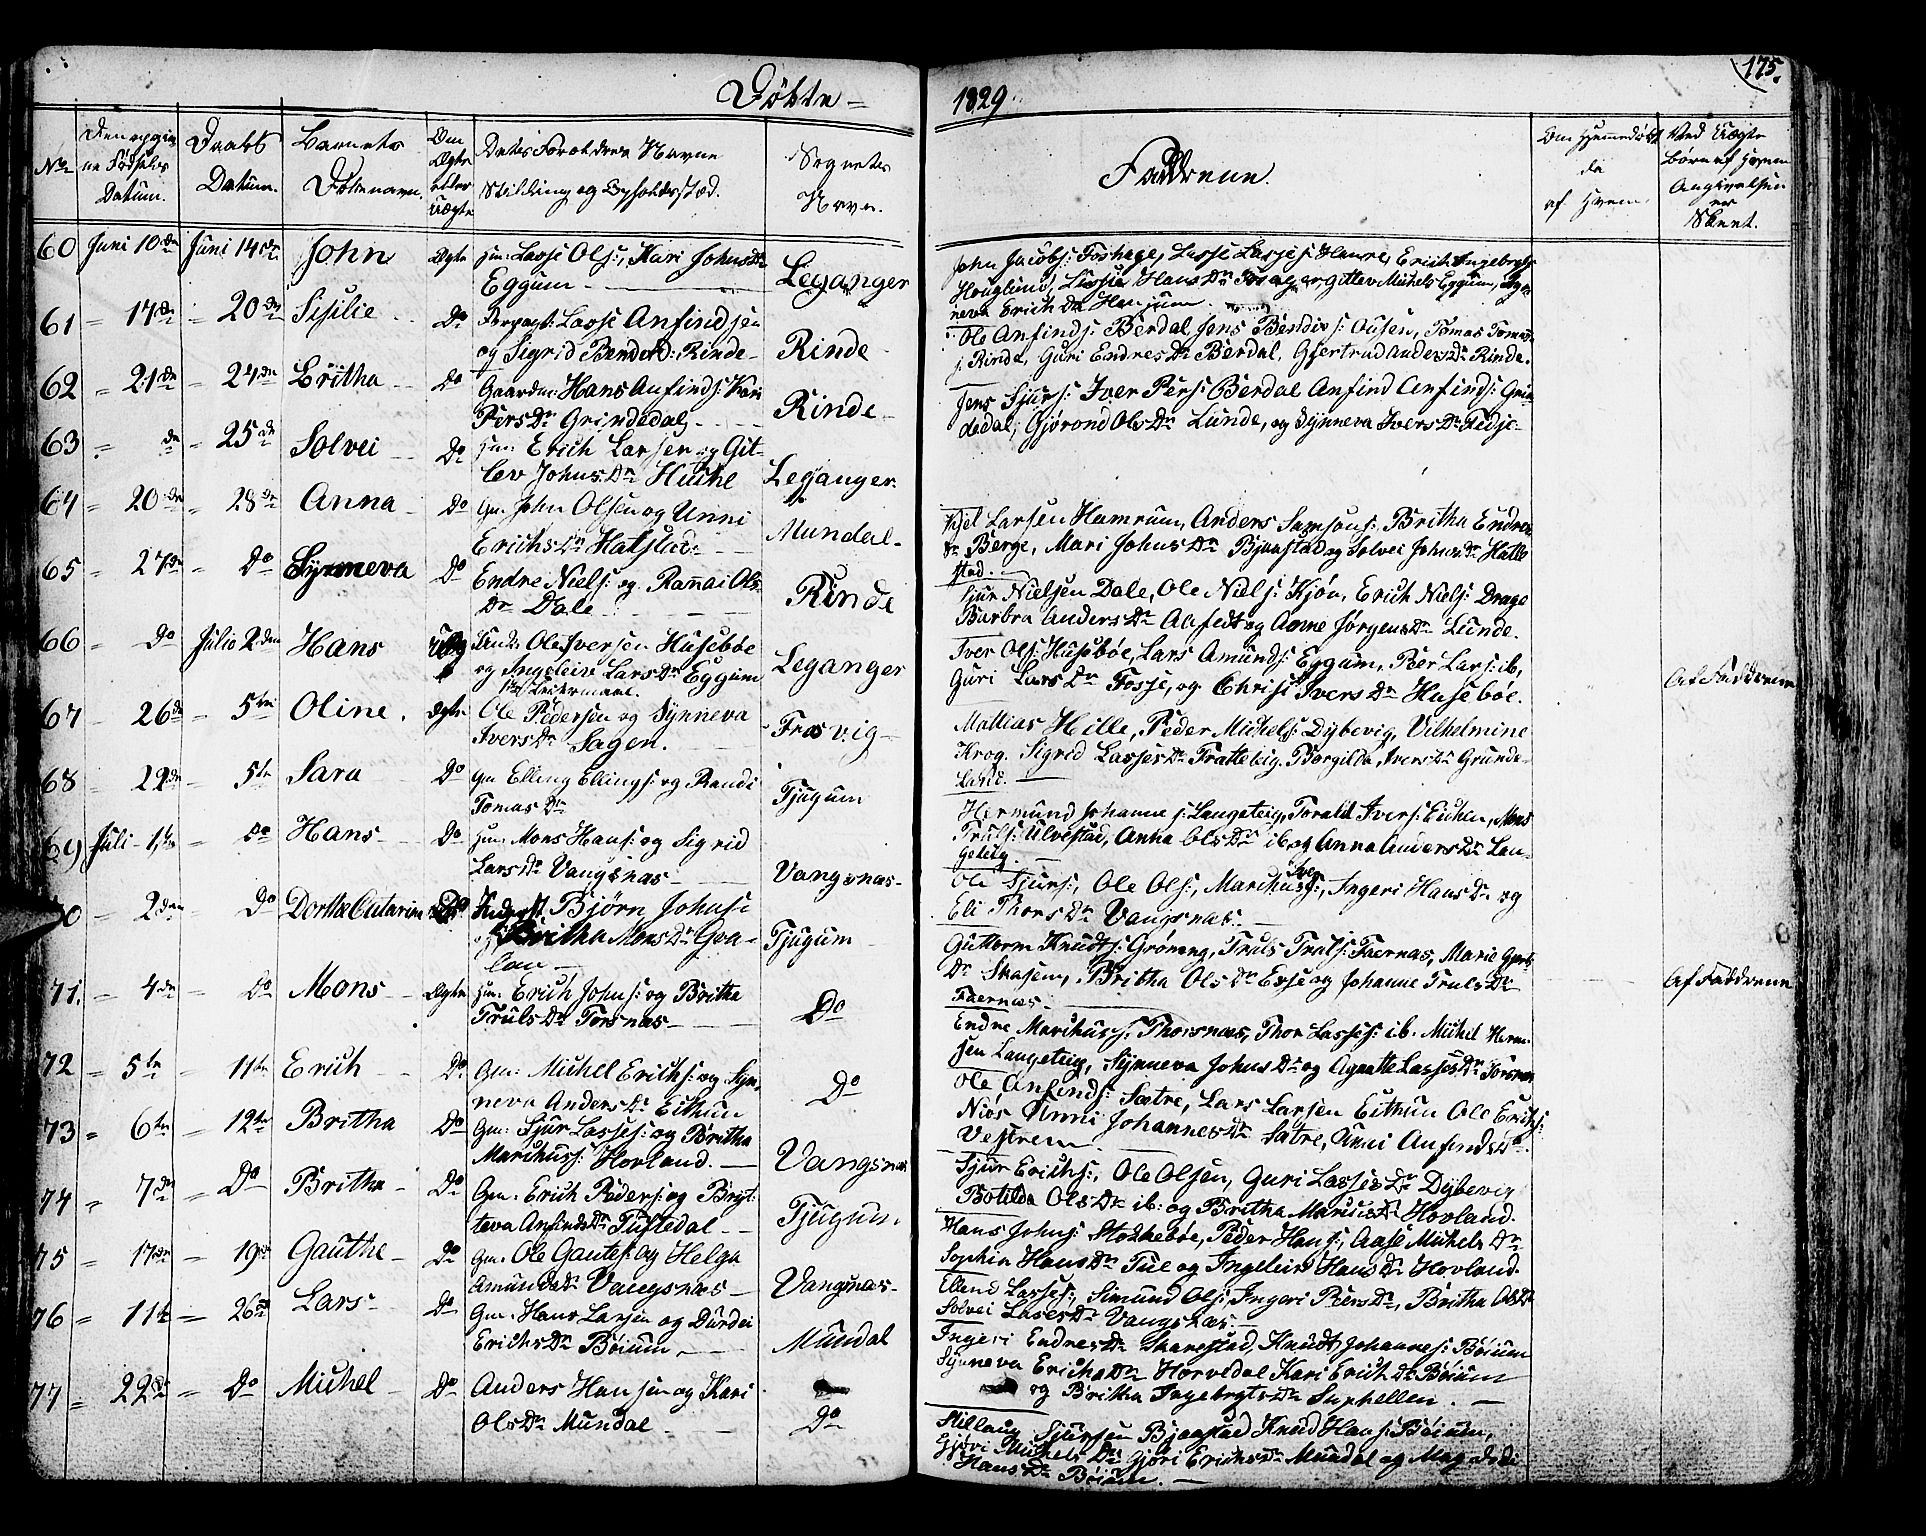 Döbte 1829. 175.
No
Den opgivne Fødsels Datum.
Daabs Datum.
Barnets Døbenavn.
Om Ægte eller Uægte
Dets Forældres Navne Stilling og Opholdssted.
Sognets Navn.
Faddrene.
Om Hjemmedøbt da af Hvem.
Ved Uægte børn af Hvem Angivelsen er Skeet.
60 Juni 10de Juni 14de John Ægte Hm: Lasse Ols:, Kari JohnsDr
Eggum Leganger
John Jacobs: Foshage, Lasse Lasses: Hamre, Erich Ingebrigts:
Houglund, Lissie HansDr Gitlev Michels Eggum,
neva ErichDr Henjum.
61 17de 20de Sisilie Do Forpagt: Lasse Anfindsen
og Sigrid Bendixd: Rinde Rinde
Ole Anfinds: Berdal Jens Bendix s: Ousen, Tomas Tomas
s: Rinde, Guri EndresDr Berdal, Gjertrud AndersDr Rinde.
62 21de 24de Britha Do Gaardm: Hans Anfinds: Kari
PersDr Grindedal Rinde
Jens Sjurs: Iver Pers: Berdal Anfind Anfinds: Grin
dedal, Gjørond OlsDr Lunde, og Synneva IversDr Tedje
63 de 25de Solvei Do Hm: Erich Larsen og Git-
lev JohnsDr Huske Leganger
64 20de 28de Anna Do Gm John Olsen og Unni
ErichsDr Hatstad Mundal
Kjel Larsen Hamrum, Anders Samsons: Britha Endres
Dr Berge, Mari JohnsDr Bjaastad og Solvei JohnsDr Hatte
stad.
65 27de Do Synneva Do Endre Niels: og Rannai Ols
Dr Dale Rinde
Sjur Nielsen Dale, Ole Niels: Kjøn, Erich Niels: Drage
Barbra AndersDr Aafedt og Anne JørgensDr Lunde.
66 Do Julio 2den Hans Uæg Ole Iversen Husebøe
og Ingeleiv LarsDr Eggum Leganger
1ste Leiermaal.
Iver Ols: Husebøe, Lars Amunds: Eggum, Peer Lars: ib,
Guri LarsDr Fosse, og Christi IversDr Husebøe.
Af Faddrene
67 26de 5te Oline. Ægte Ole Pedersen og Synneva
IversDr Sagen. Fresvig
Mattias Hille, Peder Michels: Dybevig, Vilhelmine
Krog. Sigrid LassesDr Fratteteig. Borgilda IversDr Grunde-
land.
68 22de 5te Sara Do Gm Elling Ellings: og Randi
TomasDr Tjugum
Hermund Johanne s: Langeteig, Torald Ivers: Eithun, Mons
Truls: Ulvestad, Anna OlsDr ib og Anna AndersDr Lan-
geteig.
69 Juli 1ste Do Hans Do Hm: Mons Hans: og Sigrid
LarsDr Vangsnæs Vangsnæs
Ole Sjurs:, Ole Ols:, Marchus Ivers:, Ingeri HansDr og
Eli ThorsDr Vangsnæs.
70 2den Do Dorthe Catarina Inderst Bjørn Johns:
og Britha MonsDr Tjugum
Guttorm Knudts: Grøneng, Truls Truls: Farnæs, Marie Gjerts
Dr Skasem, Britha OlsDr Esse og Johanne TrulsDr
Farnæs.
Af Faddrene
71. 4de Do Mons Ægte Hm: Erich Johns: og Britha
TrulsDr Torsnæs Do
Endre Marchuss: Thorsnæs, Thor Lasses: ib. Michel Herm-
sen Langeteig, Synneva JohnsDr og Agaathe LassesDr Torsnæs
72 5te 11te Erich Do Gm: Michel Erichs: og Syn
neva AndersDr Eithun Do
Ole Anfinds: Sætre, Lars Larsen Eithun Ole Erichs:
Niøs Unni JohannesDr Sætre, Unni AnfindsDr
Vestrem
73 6te 12te Britha Do Gm: Sjur Lasses: og Britha
Marchuss: Hovland. Vangsnæs
Sjur Erichs:, Ole Olsen, Guri LassesDr Dybevig
Botilda OlsDr ib: og Britha MarcusDr Hovland.
74 7de Do Britha Do Gm: Erich Peders: og Bryt-
teva AnfindsDr Tuftedal Tjugum.
Hans Johns: Stokkebøe, Peder Hans:, Aase MichelsDr
Sophia HansDr Tue og Ingeleiv HansDr Hovland.
75 17de 19de Gauthe Do Gm: Ole Gautes: og Helga
AmundsDr Vangsnæs Vangsnæs
Ellend Lasses:, Simund Ols:, Ingeri PeersDr, Britha OlsDr
Solvei LassesDr Vangsnæs
76 11te 26de Lars Do Gm: Hans Larsen og Durdei
ErichsDr Bøium Mundal
Ingeri EndresDr Skarestad, Knudt Johannes: Bøium
Synneva ErichsDr Horvedal Kari ErichDr Bøium
og Britha IngebrigtsDr Suphellen.
77 22de Do Michel Do Anders Hansen og Kari
OlsDr Mundal Do
Stillaug Sjursen Bjaastad Knud Hans: Bøium,
Gjøri MichelsDr Gjøri ErichsDr Mundal og Magdeli
HansDr Bøium.